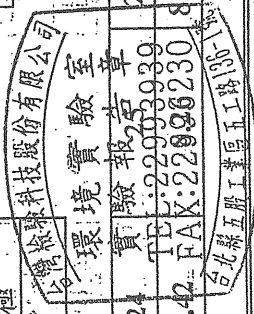 台灣檢驗科技股份有限公司
環境實驗室
實驗報告章
TEL:22993939
FAX:22996230
台北縣五股工業區五工路136-1號